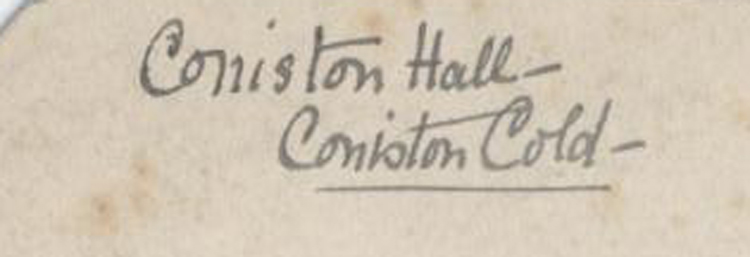 Coniston Hall–
Coniston Cold–